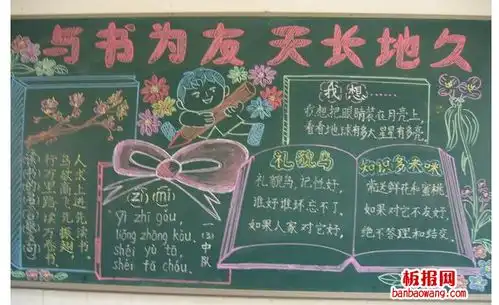 与书为友 天长地久
人求上进先读书,
鸟欲高飞先振翅,
行万里路读万卷书
(zì)(mí)
yì zhī gǒu,
liǎng zhāng kǒu,
shéi yù tā,
shéi fā chóu.
一(3)中队
我想……
我想把眼睛装在月亮上,
看看地球有多大星星有多亮。
礼貌鸟
礼貌鸟,记性好,
谁好谁坏忘不了,
如果人家对它好,
知识多来咪
常送鲜花和蜜桃
如果对它不友好,
绝不答理和结交。
板报网
banbaowang.com